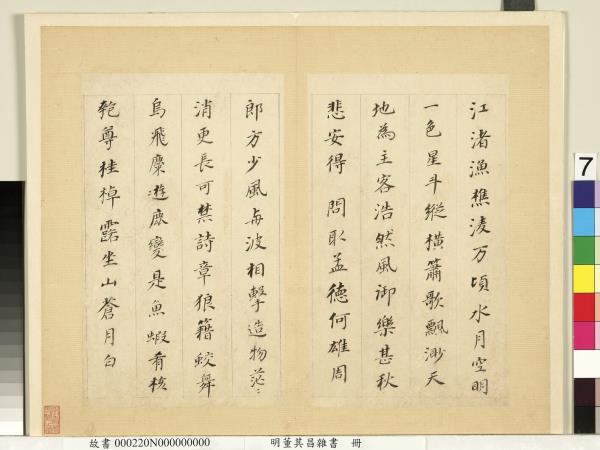 江渚漁樵淩万頃水月空明
一色星斗縱橫簫歌飄渺天
地為主客浩然風御樂甚秋
悲安得 問取孟德何雄周
郎方少風與波相擊造物茫〻
消更長可禁詩章狼籍蛟舞
烏飛麋遊鹿變是魚蝦肴核
匏尊桂棹露坐山蒼月白
7
故書 000220N000000000 明董其昌雜書 冊